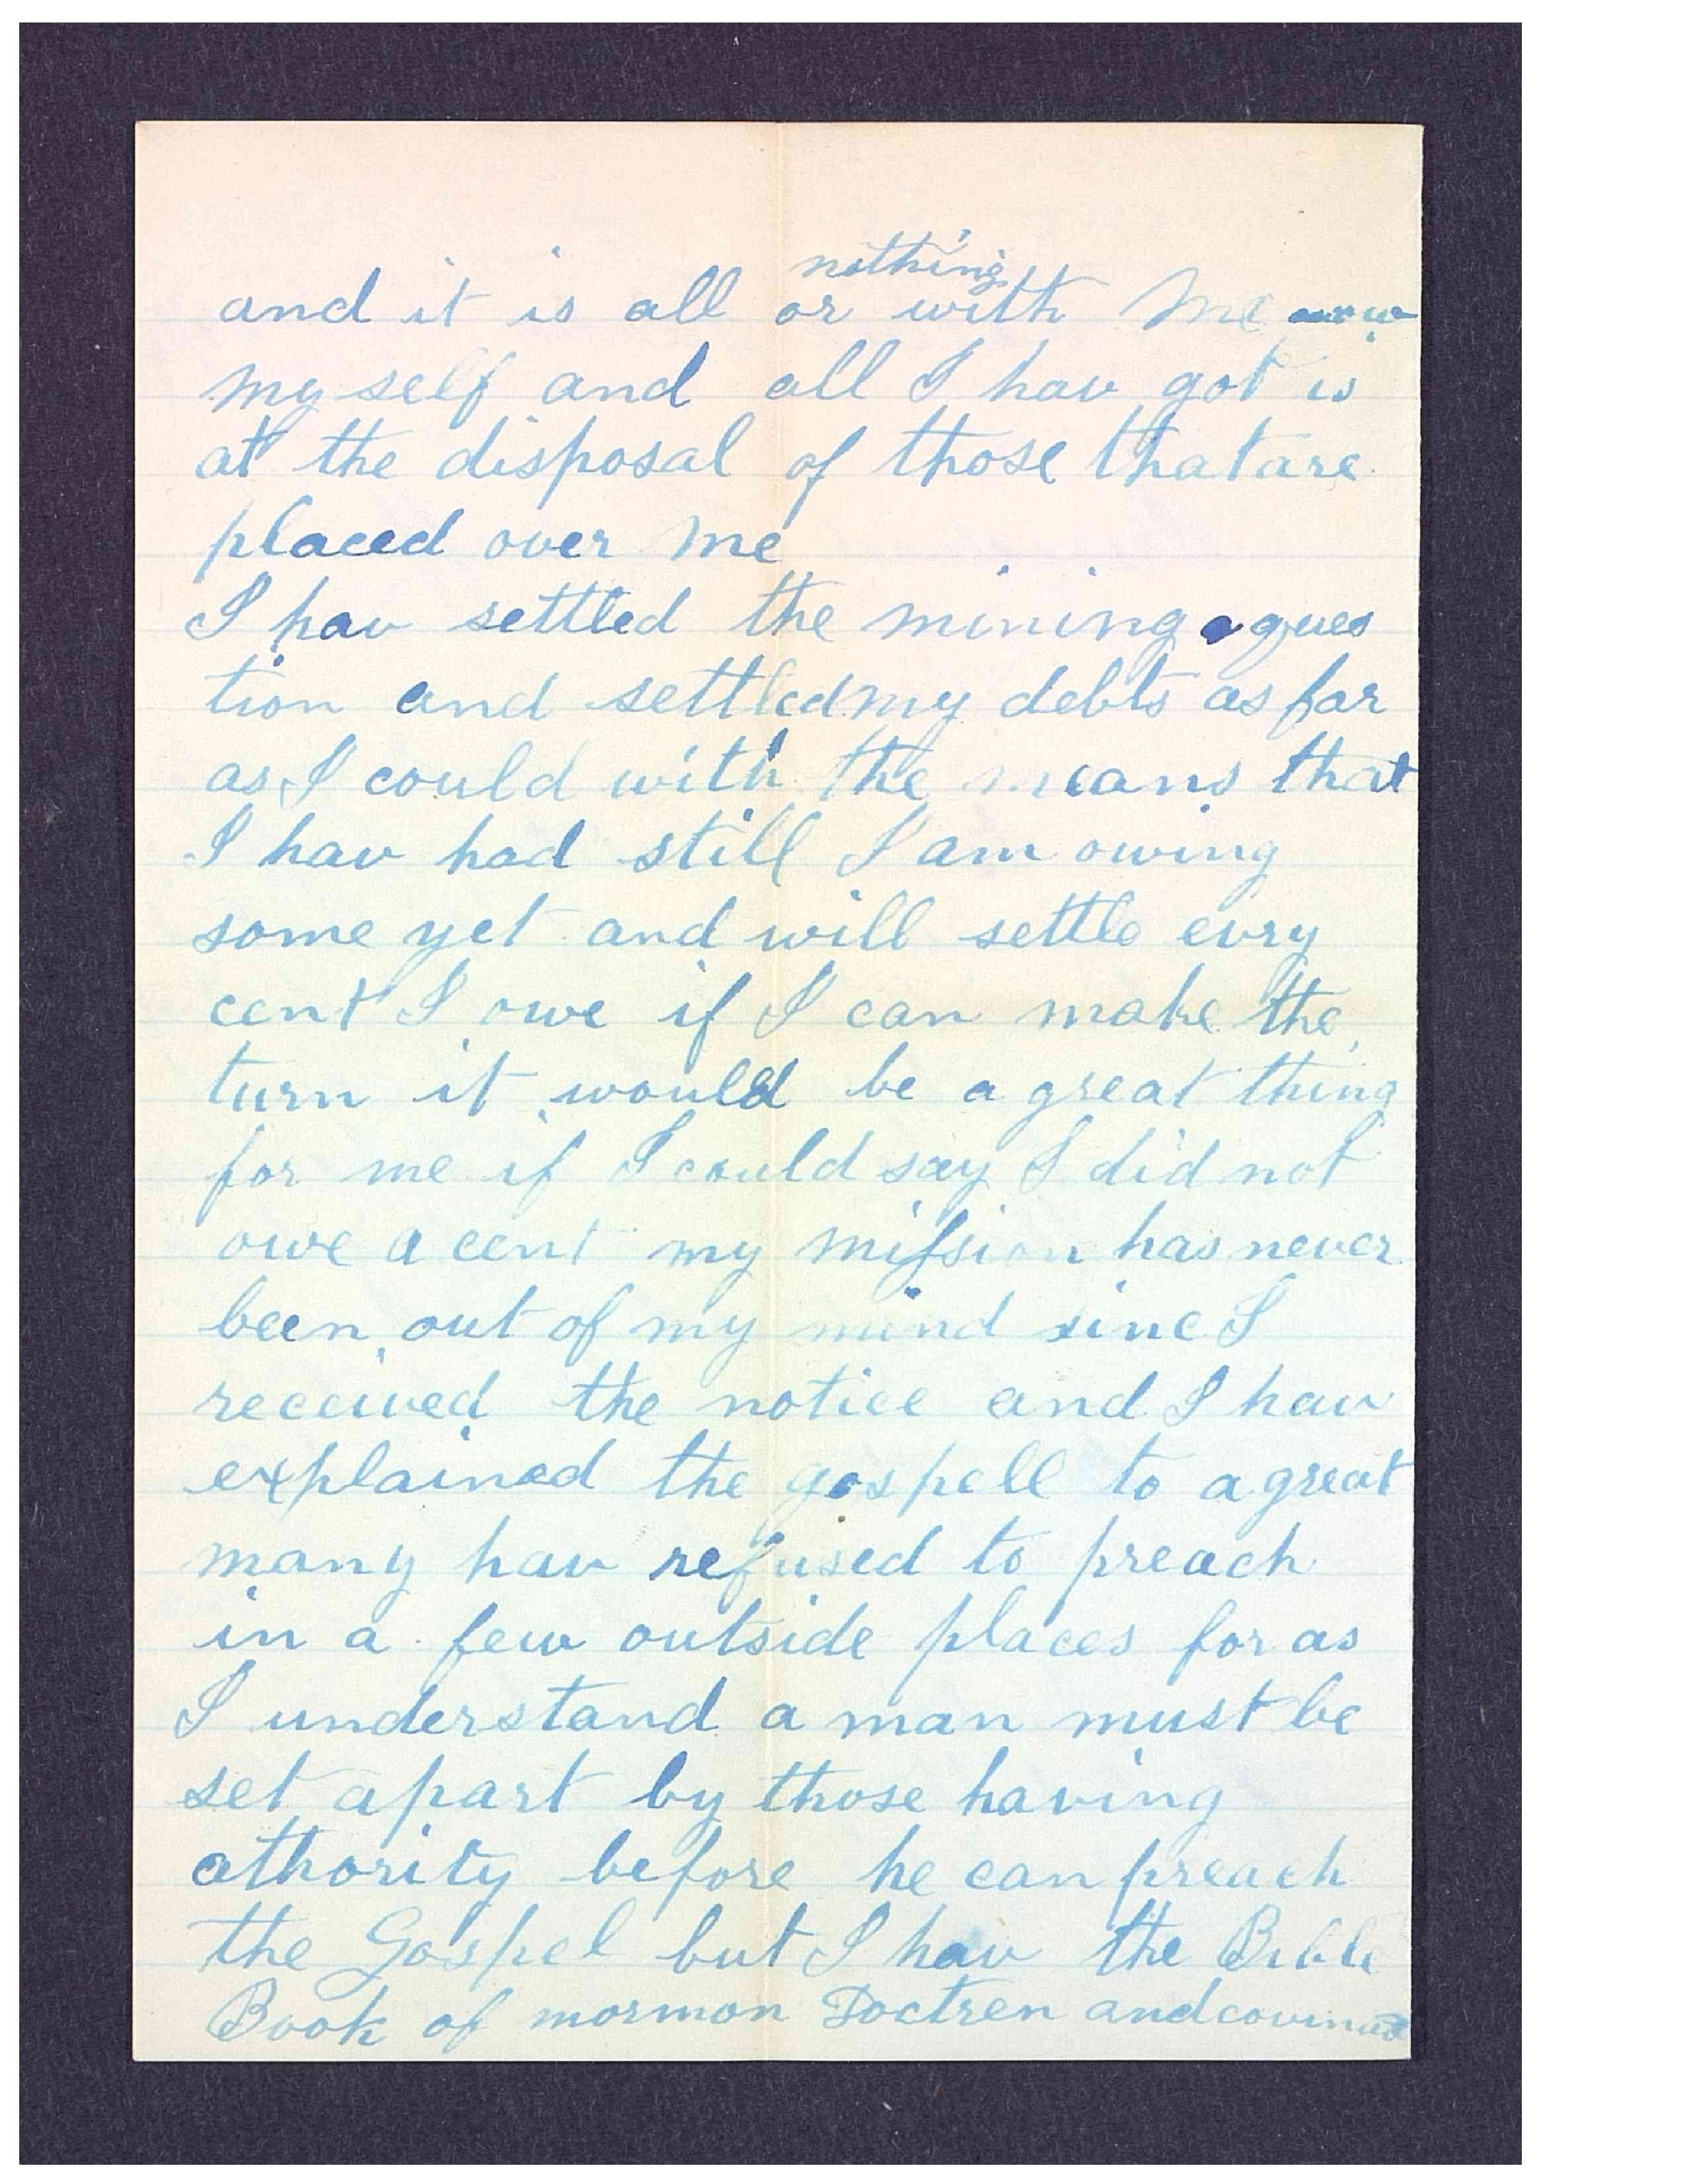 nothing
and it is all or with me
my self and all I hav got is
at the disposal of those that are
placed over me
I hav settled the mining ques
tion and settled my debts as far
as I could with the means that
I hav had still I am owing
some yet and will settle evry
cent I owe if I can make the
turn it would be a great thing
for me if I could say I did not
owe a cent my mission has never
been out of my mind sinc I
received the notice and I hav
explained the gospell to a great
many hav refused to preach
in a few outside places for as
I understand a man must be
set apart by those having
athority before he can preach
the Gospel but I hav the Bible
Book of mormon Doctren and